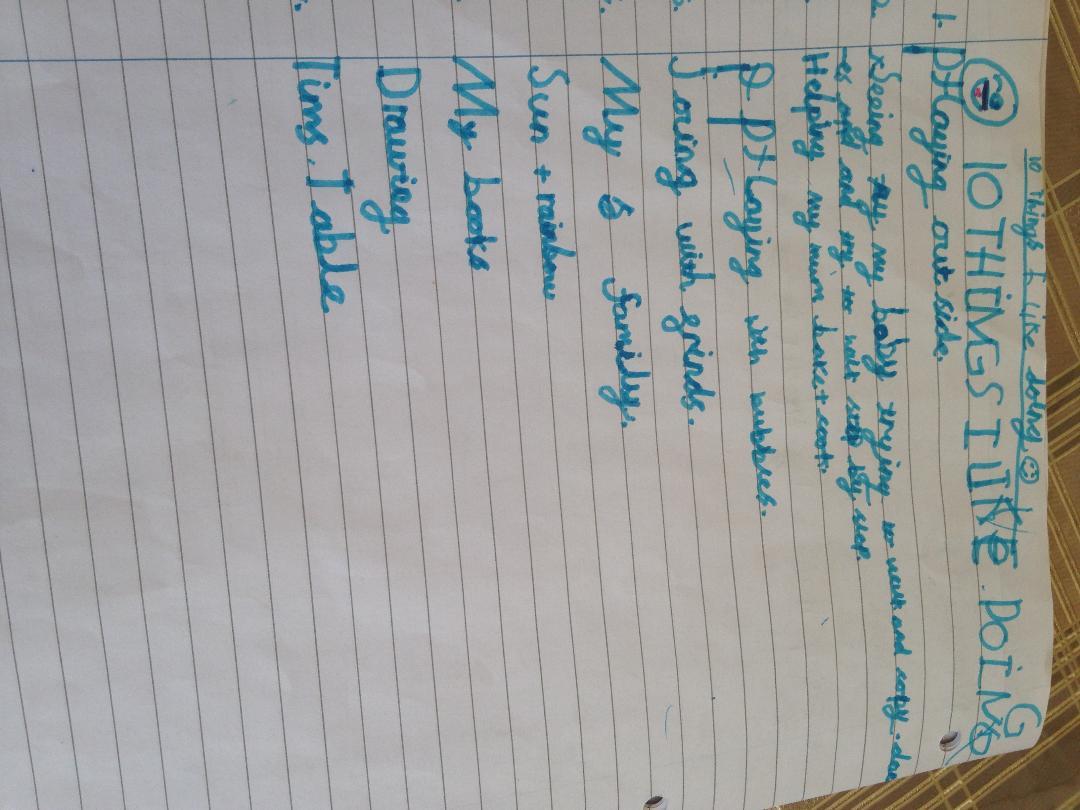 10 Things I like doing
10 THINGS I LIKE DOING
1. Playing outside.
2. Seeing my baby trying to and copy
and try to step by step
Helping my mum bake + cook
Playing with bubbles.
joing with frinds.
My family.
Sun + rainbow
My books
Drawing
Tims. Table